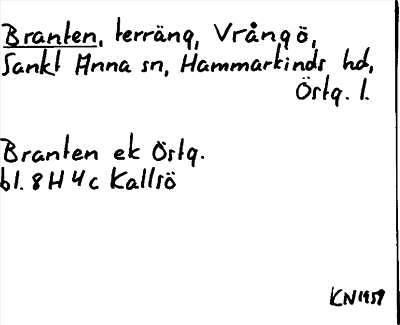 Branten, terräng, Vrångö,
Sankt Anna sn, Hammarkinds hd,
Östg. l.
Branten ek Östg.
bl. 8H 4c Kallsö
KN1959